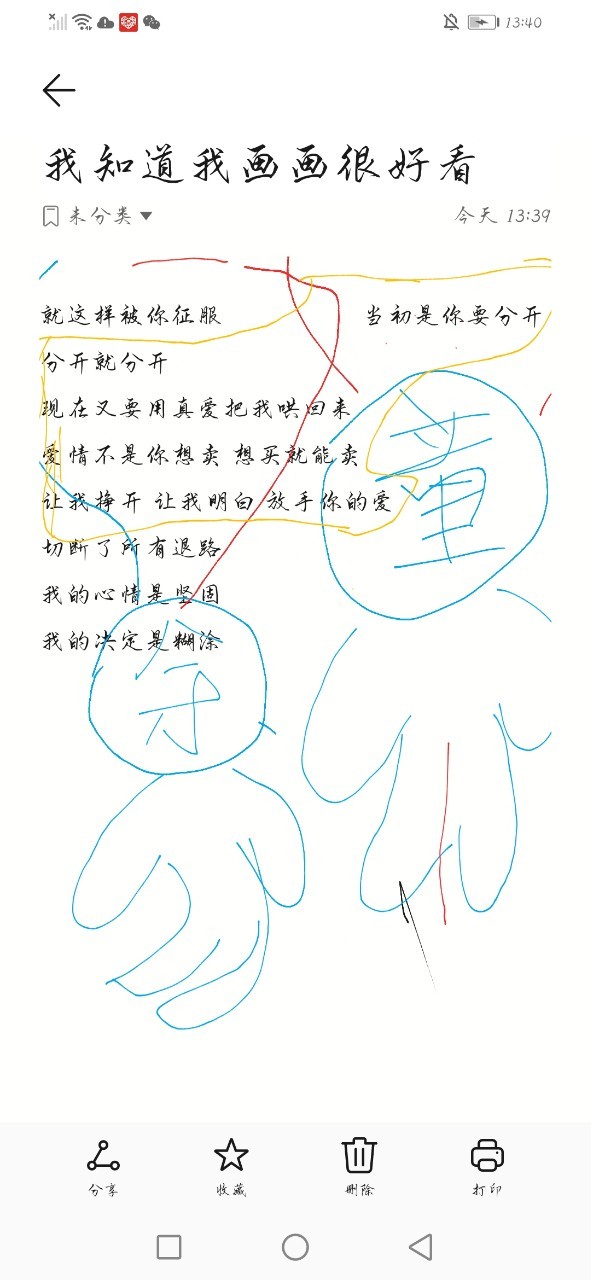 13:40
我知道我画画很好看
未分类 今天 13:39
就这样被你征服 当初是你要分开
分开就分开
现在又要用真爱把我哄回来
爱情不是你想卖 想买就能卖
让我挣开 让我明白 放手你的爱
切断了所有退路
我的心情是坚固
我的决定是糊涂
董
分享 收藏 删除 打印